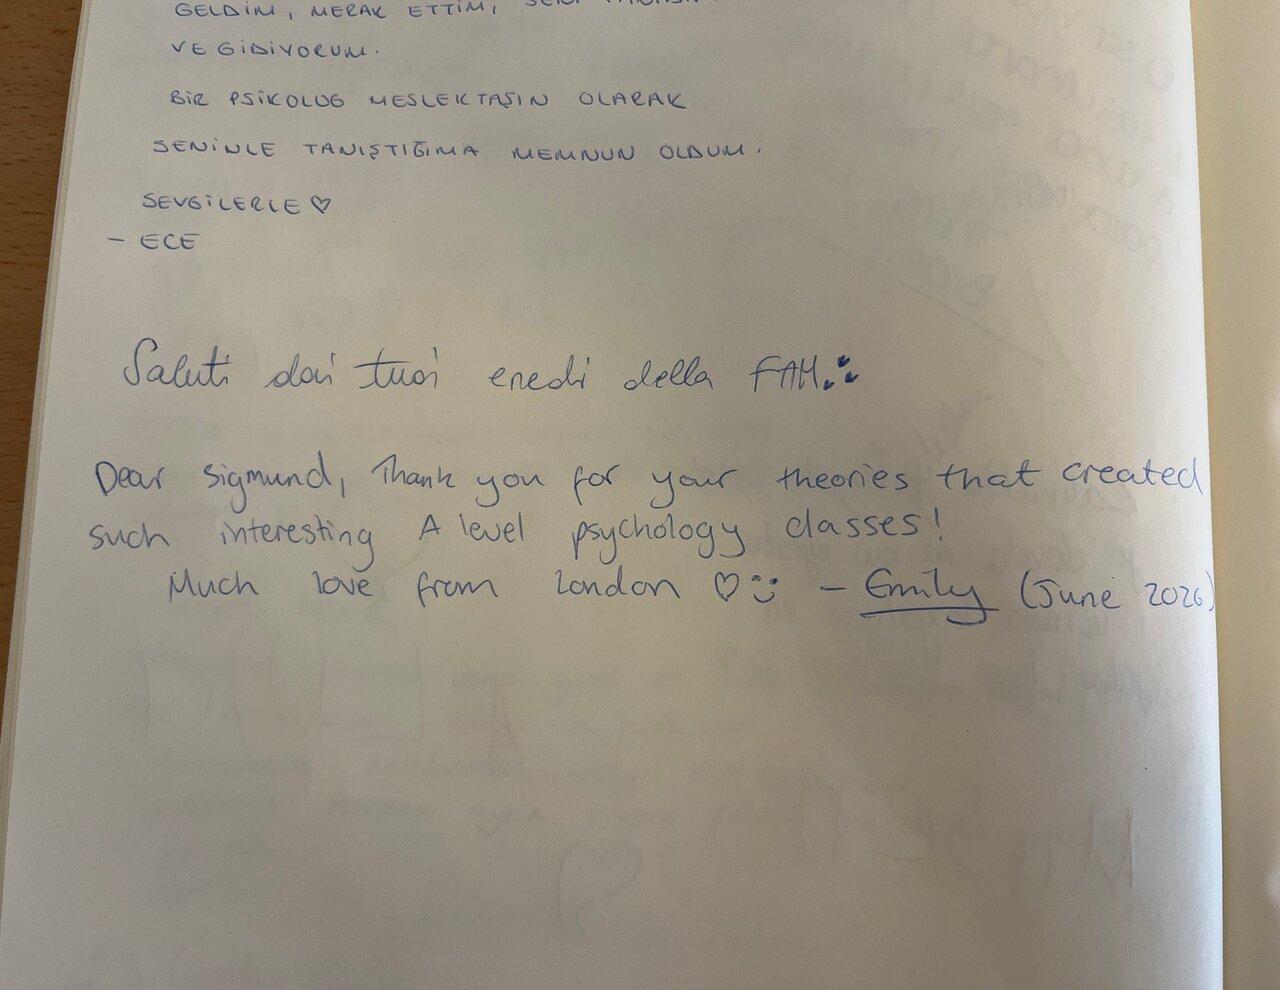 GELDİM, MERAK ETTİM, SENİ
VE GİDİYORUM.
BİR PSİKOLOG MESLEKTAŞIN OLARAK
SENİNLE TANIŞTIĞIMA MEMNUN OLDUM.
SEVGİLERLE ♡
- ECE
Saluti dai tuoi eredi della FAM∴
Dear Sigmund, Thank you for your theories that created
such interesting A level psychology classes!
Much love from London ♡ :) - Emily (June 2026)